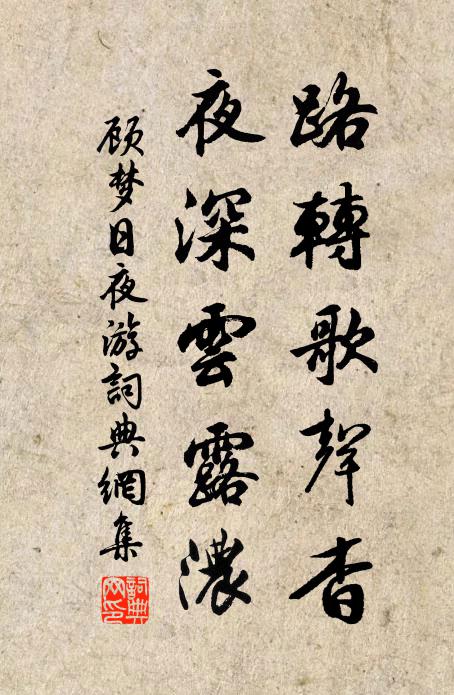 路轉歌聲杳
夜深雲露濃
顾梦日夜游詞典網集
詞典網印